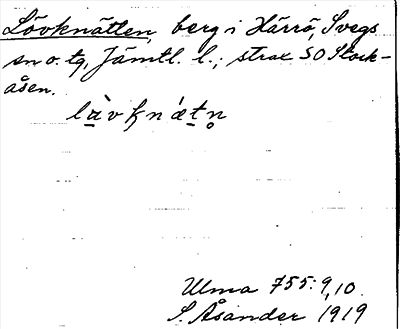 Lövknätten, berg i Härrö, Svegs
sn o. tg, Jämtl. l.; strax SO Stock-
åsen.
Ulma 755:9,10.
S. Åsander 1919